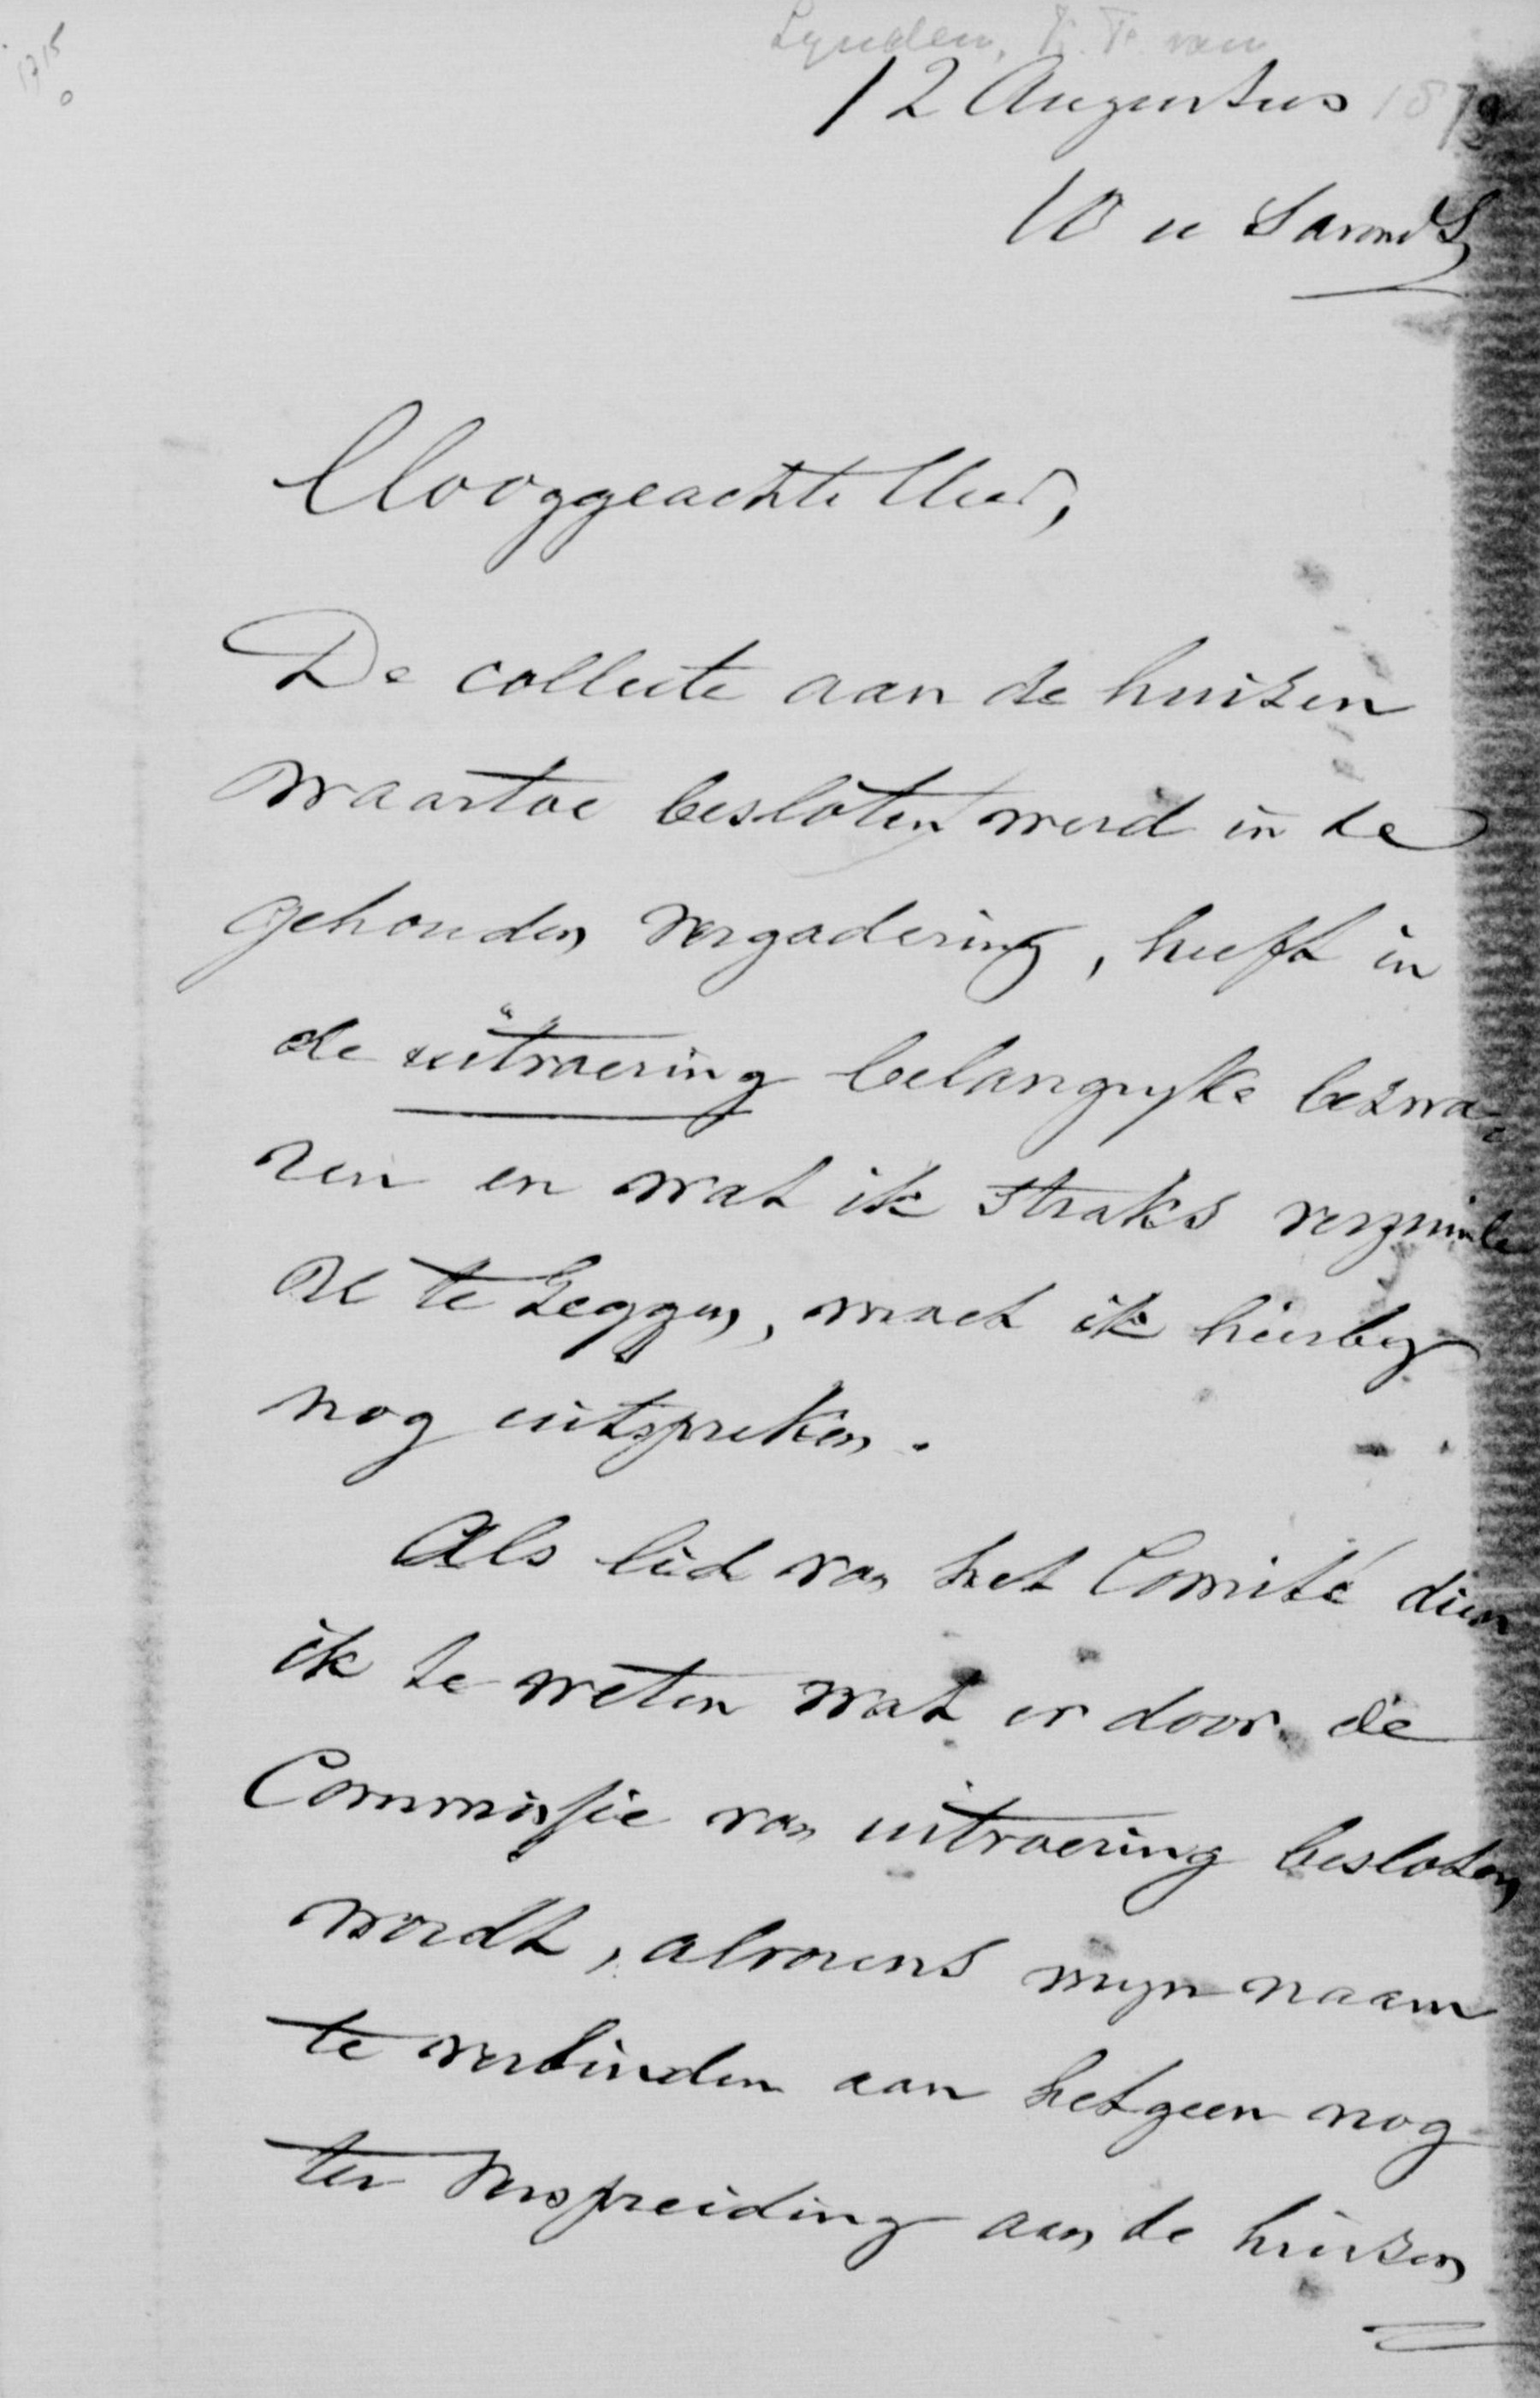 Lynden, van
12 Augustus 187
10 u Savonds
Hooggeachte Heer,
De collecte aan de huizen
waartoe besloten werd in de
gehouden vergadering, heeft in
de uitvoering belangryke bezwa-
ren en wat ik straks verzuim
de te zeggen, moet ik hierby
nog uitspreken.
Als lid van het Comité dien
ik te weten wat er door de
Commissie van uitvoering besloten
wordt, alvorens myn naam
te verbinden aan hetgeen nog
ter verspreiding aan de huizen